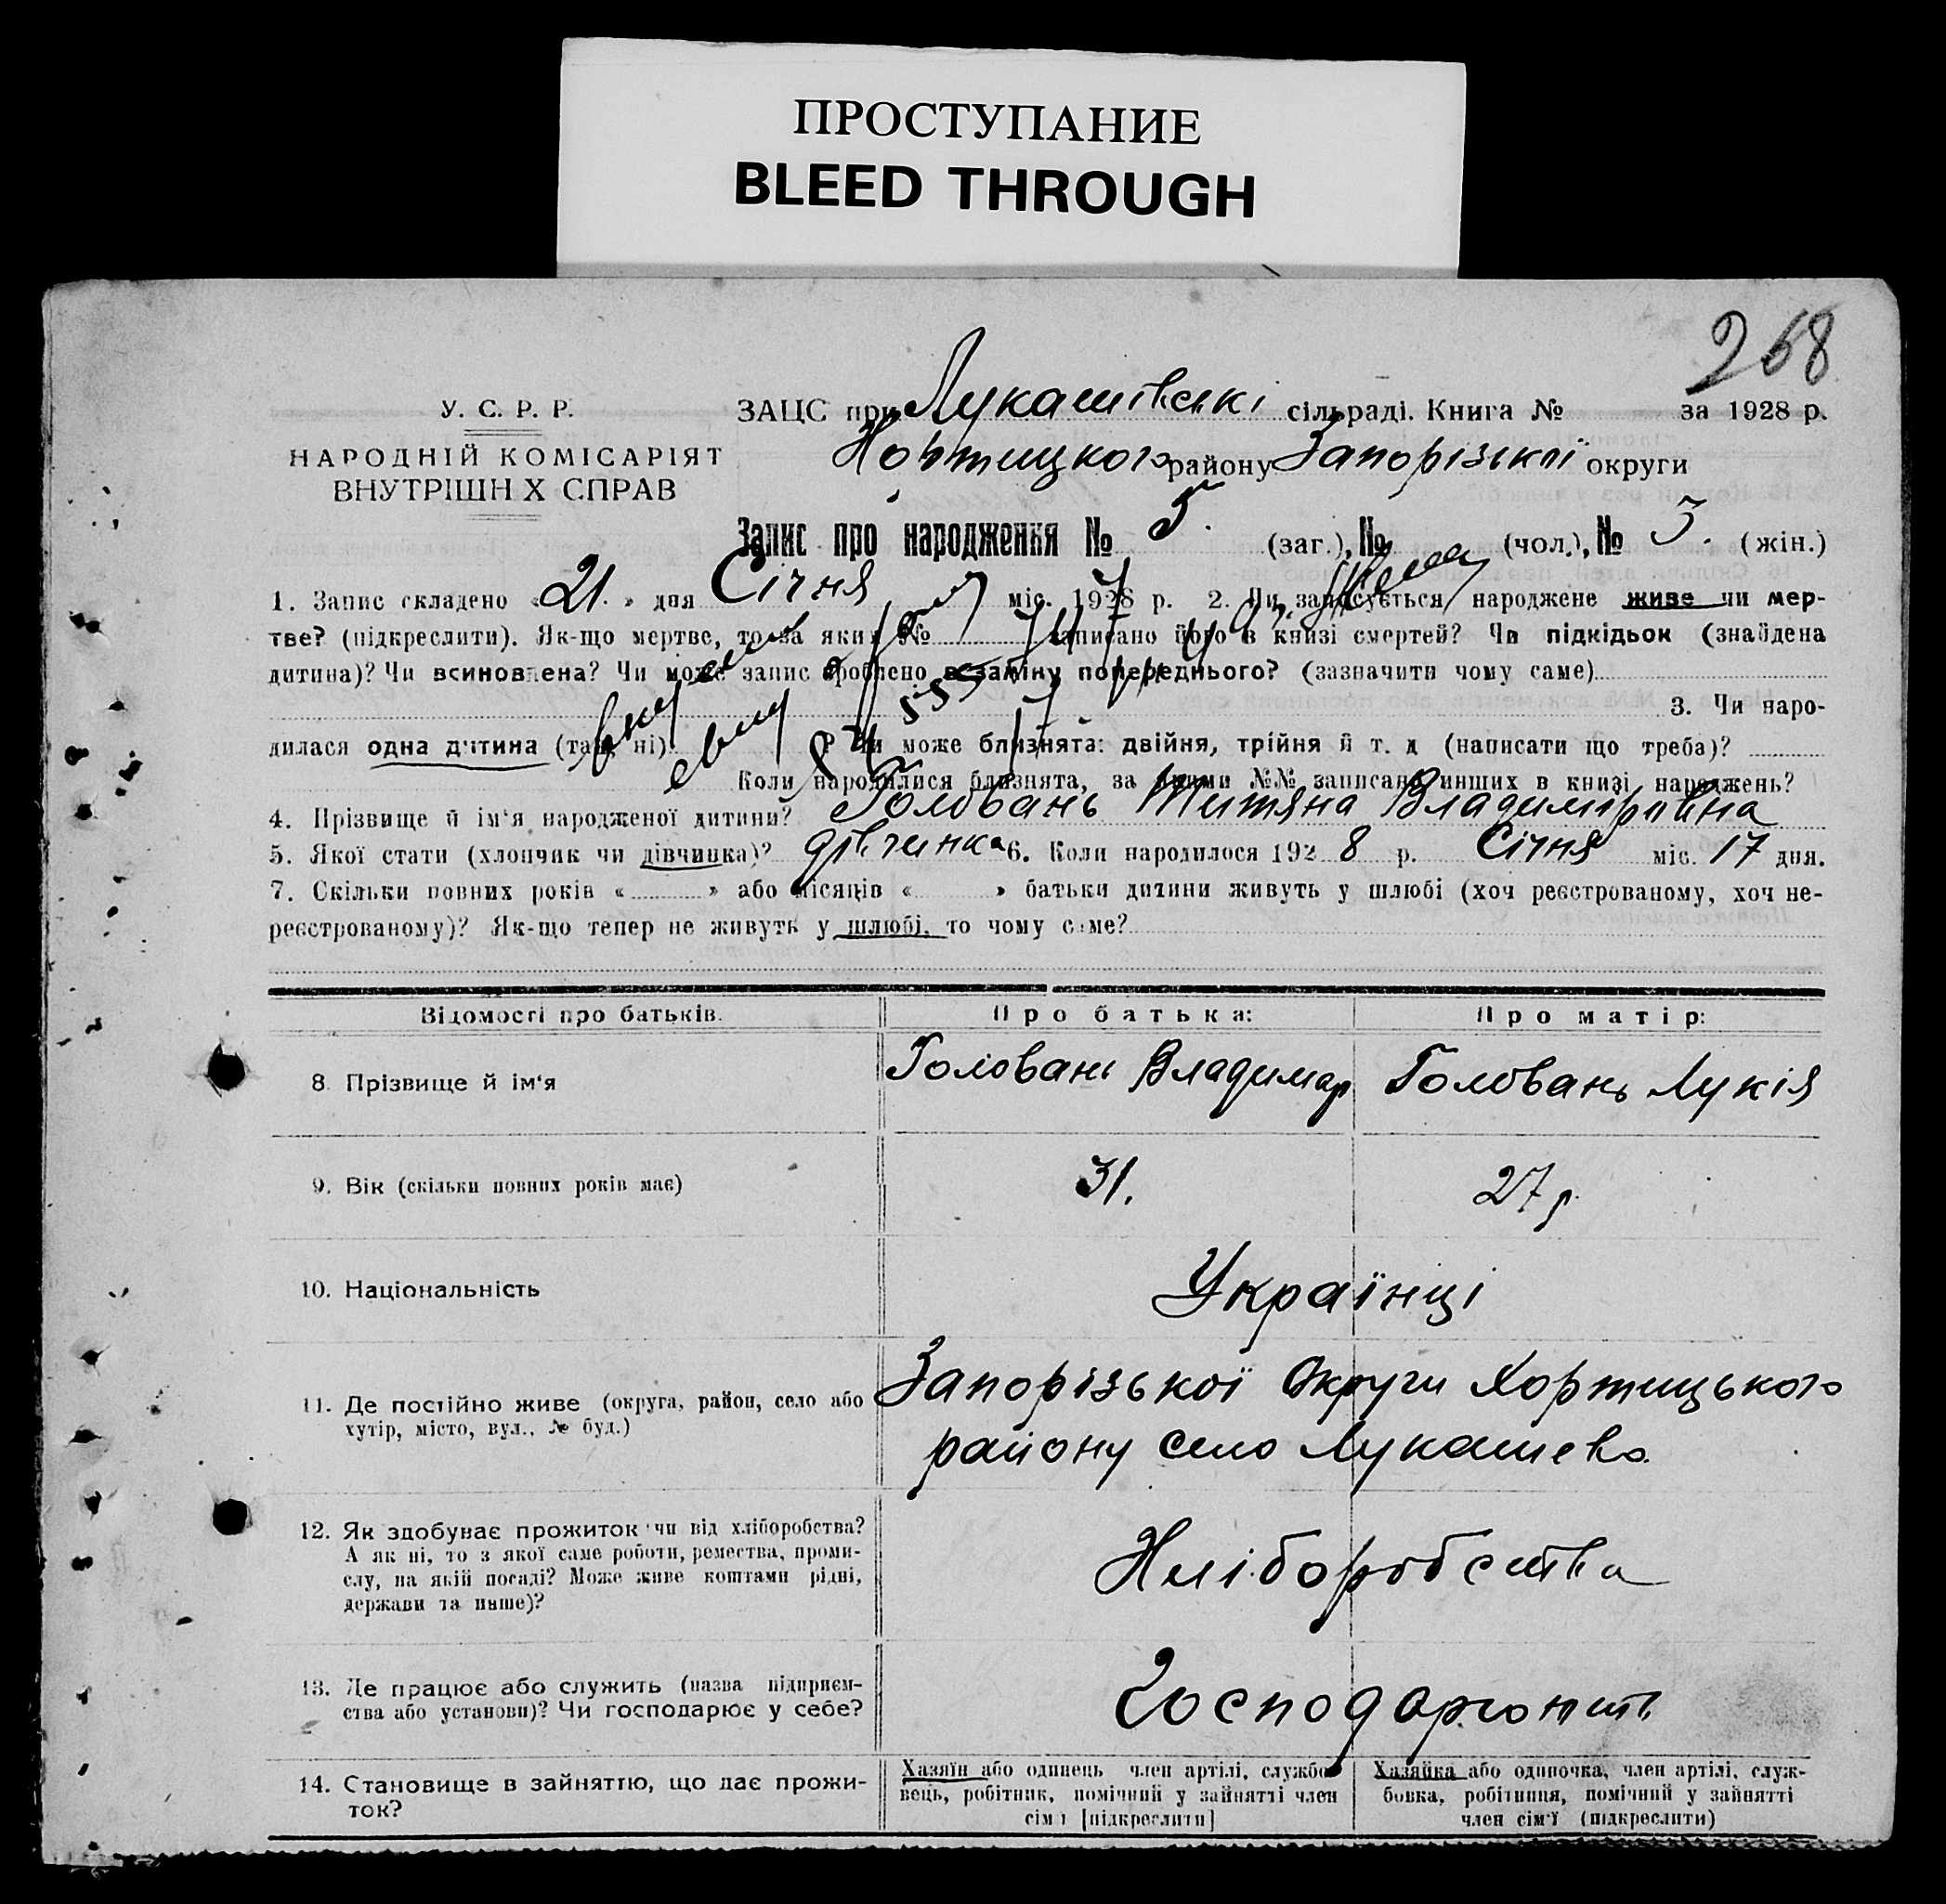 ПРОСТУПАНИЕ
BLEED THROUGH
268
У. С. Р. Р.
НАРОДНІЙ КОМІСАРІЯТ
ВНУТРІШН Х СПРАВ
ЗАЦС при Лукашівські сільраді. Книга № за 1928 р.
Хортицкого району Запорізької округи
Запис про народження № 5. (заг.), № (чол.), № 3. (жін.)
1. Запис складено « 21. » дня Січня міс. 1928 р. 2. Чи записується народжене живе чи мер-
тве? (підкреслити). Як-що мертве, то за яким № записано його в книзі смертей? Чи підкідьок (знайдена
дитина)? Чи всиновлена? Чи може запис зроблено взаміну попереднього? (зазначити чому саме)
3. Чи наро-
дилася одна дитина (так, ні) ? Чи може близнята: двійня, трійня й т. д (написати що треба)?
Коли народилися близнята, за якими №№ записано инших в книзі народжень?
4. Прізвище й ім'я народженої дитини? Головань Титяна Владимировна
5. Якої стати (хлопчик чи дівчинка)? дівчинка 6. Коли народилося 192 8 р. Січня міс. 17 дня.
7. Скільки повних років « » або місяців « » батьки дитини живуть у шлюбі (хоч реєстрованому, хоч не-
реєстрованому)? Як-що тепер не живуть у шлюбі, то чому саме?
Відомості про батьків. Про батька: Про матір:
8. Прізвище й ім'я Головань Владимир Головань Лукія
9. Вік (скільки повних років має) 31. 27 р.
10. Національність Українці
11. Де постійно живе (округа, район, село або
хутір, місто, вул., № буд.)
Запорізької Округи Хортицького
району село Лукашево
12. Як здобуває прожиток чи від хліборобства?
А як ні, то з якої саме роботи, ремества, проми-
слу, на якій посаді? Може живе коштами рідні,
держави та инше)?
Хліборобства
13. Де працює або служить (назва підприєм-
ства або установи)? Чи господарює у себе?
Господарюють
14. Становище в зайняттю, що дає прожи-
ток?
Хазяїн або одинець член артілі, службо-
вець, робітник, помічний у зайнятті член
сім'ї [підкреслити]
Хазяйка або одиночка, член артілі, служ-
бовка, робітниця, помічний у зайнятті
член сім'ї (підкреслити)